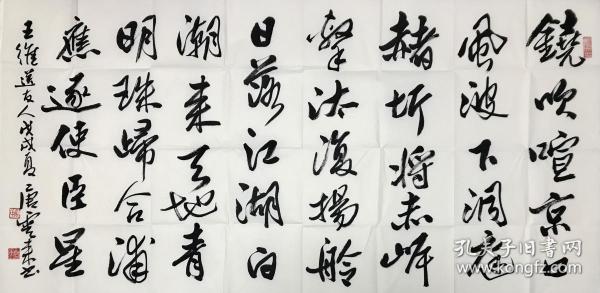 鐃吹喧京口
風波下洞庭
赭圻将赤岸
擊汰復揚舲
日落江湖白
潮来天地青
明珠歸合浦
應逐使臣星
王維送友人戊戌夏唐雲来书
孔夫子旧书网